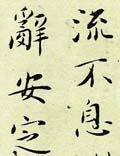 流不息
辭安定